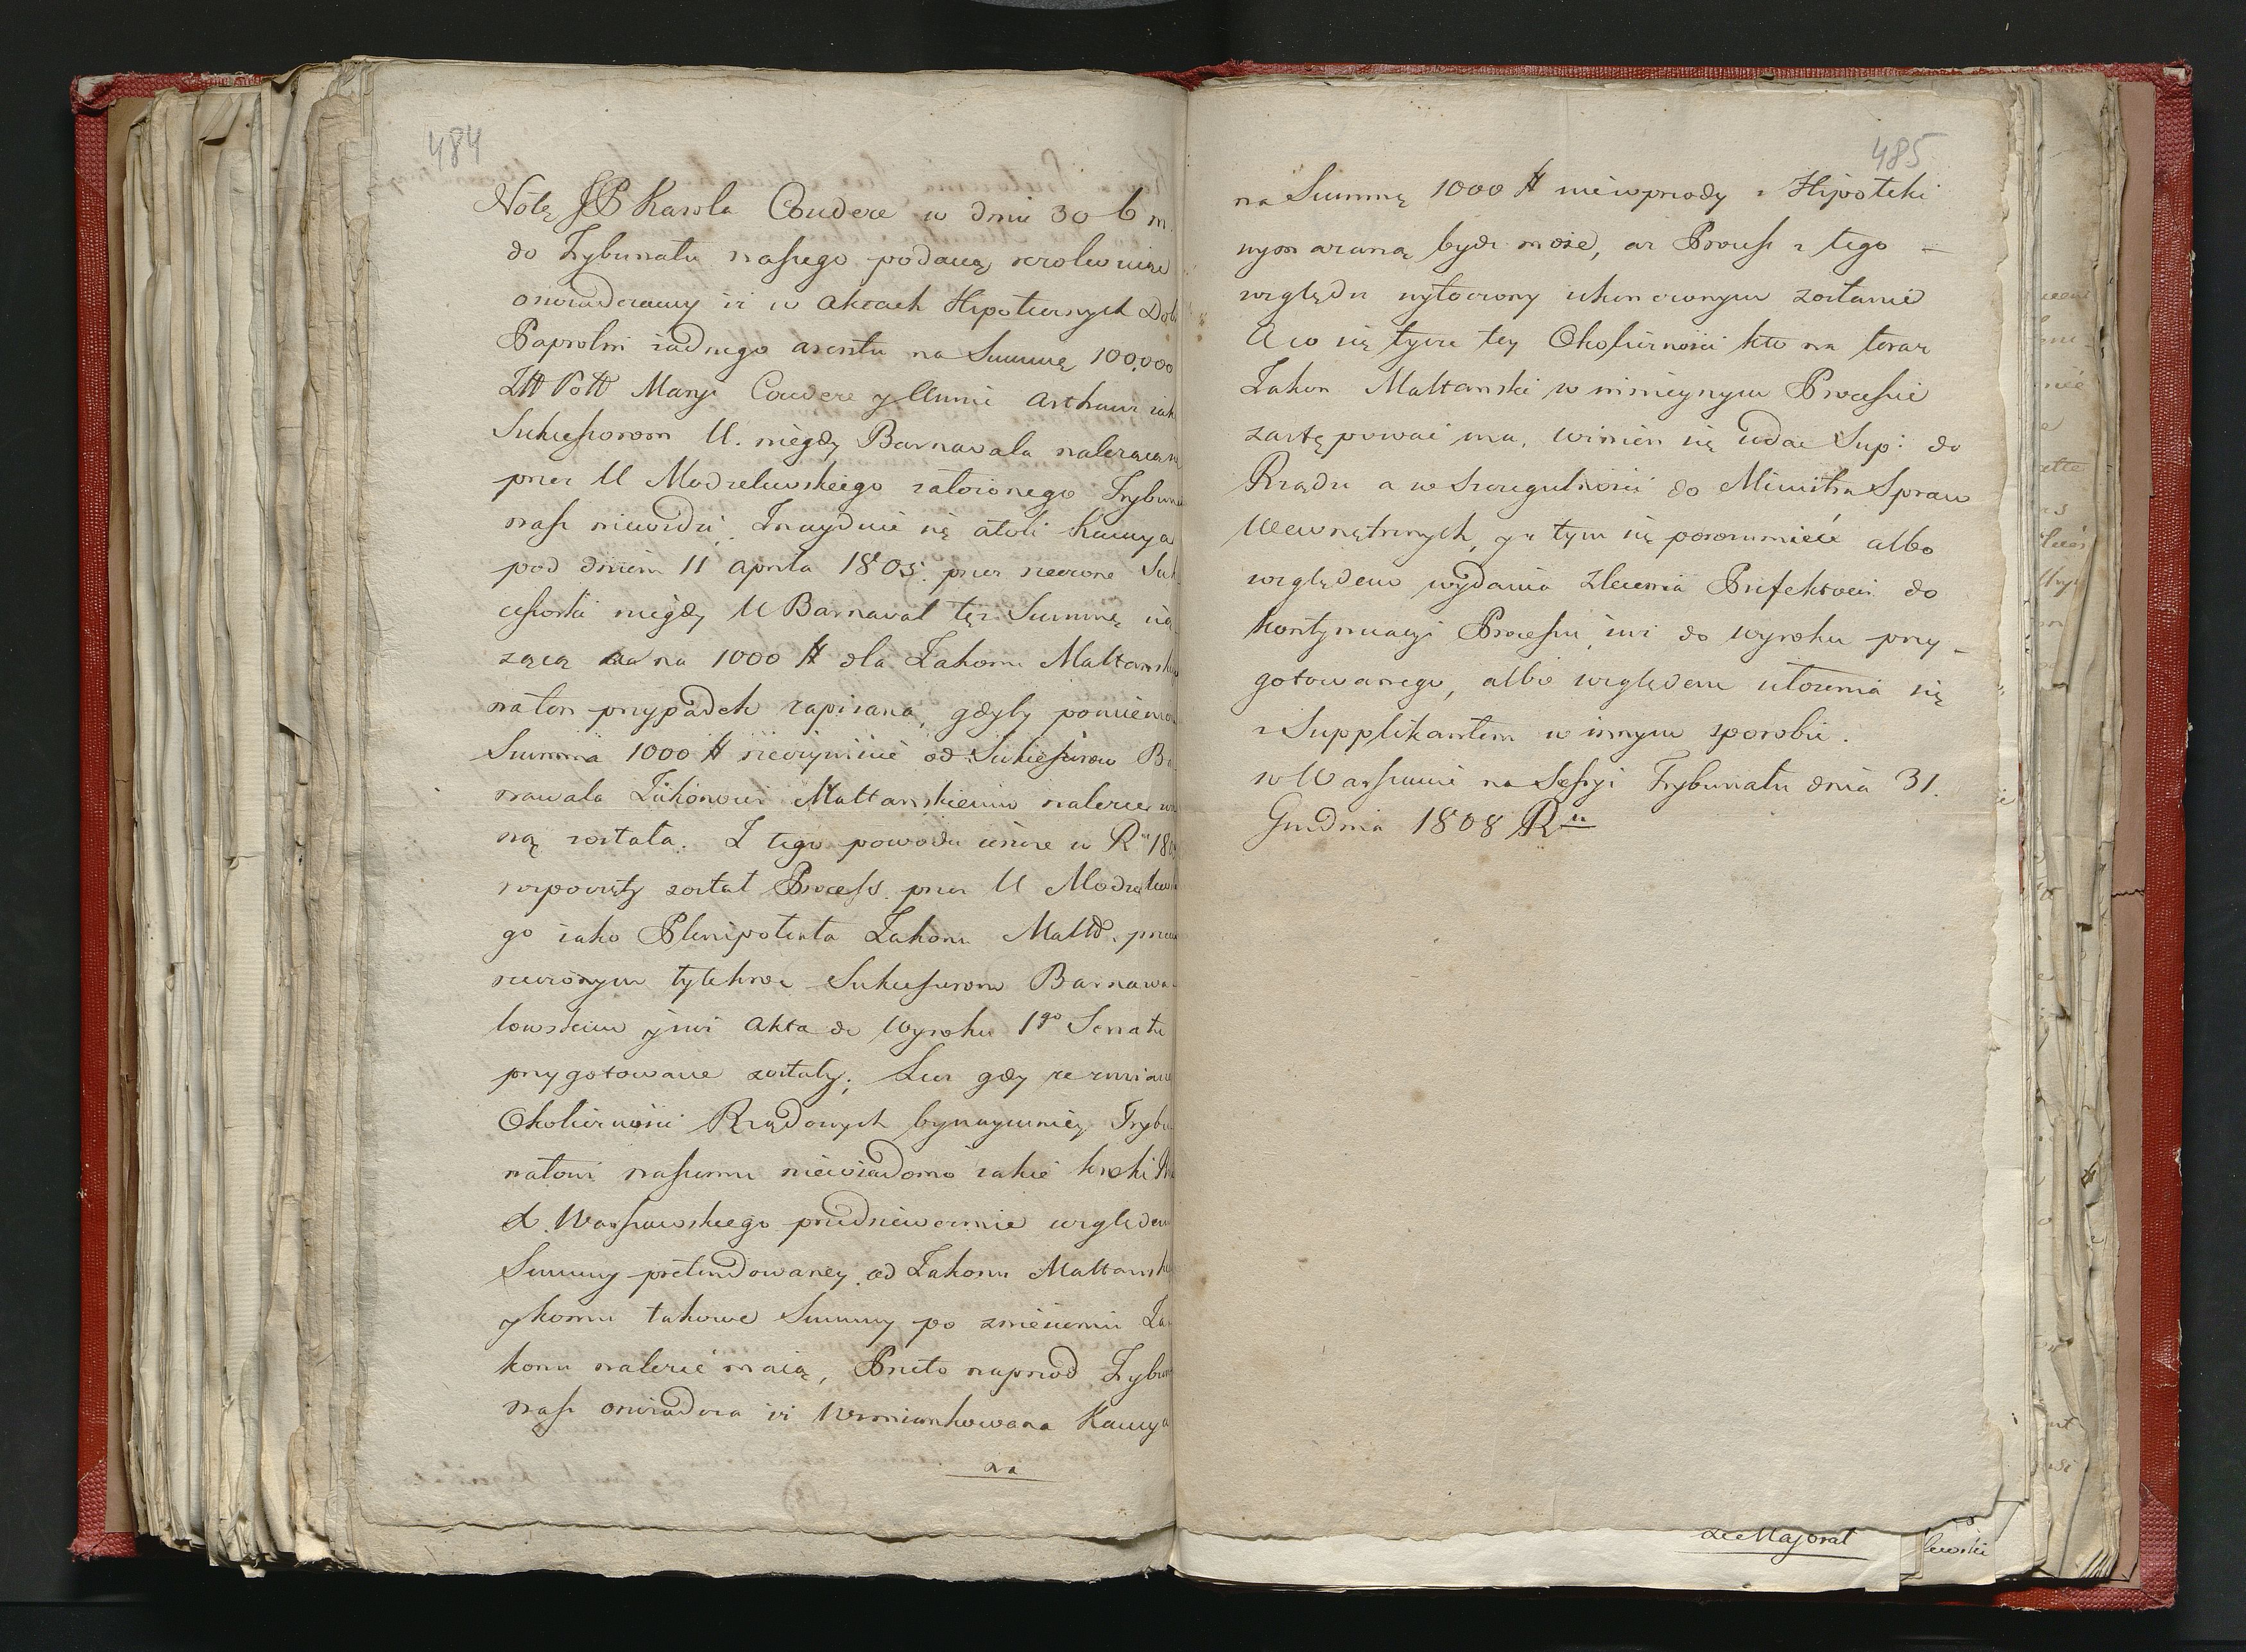 484
Notę JP Karola Coudere w dniu 30 b m.
do Trybunału naszego podaną rezolwuiąc
oswiadczamy iż w Aktach Hipotecznych Dob
Paprotni żadnego aresztu na Summę 100,000
Złł Poll Maryi Coudere y Annie Arthaur iak
Sukcessorom U. niegdy Barnavala należącą
przez U Modzelewskiego założonego Trybun
nasz niewidzi. Znayduie się atoli Kaucya
pod dniem 11 Aprila 1805. przez rzeczone Suk
cessorki niegdy U Barnaval tęż Summę
na 1000 # dla Zakonu Maltansk
na ten przypadek zapisana, gdyby pomienio
Summa 1000 # rzeczywiscie od Sukcessorow Ba
nawala Zakonowi Maltanskiemu należeć
ną została. Z tego powodu iescze w R 180
rozpoczęty został Process przez U Modzelewsk
go iako Plenipotenta Zakonu Maltt. przeci
rzeczonym tylekroc Sukcessorom Barnawa-
lowskim y iuż Akta do Wyroku 1go Senatu
przygotowane zostały; Lecz gdy ze zmianą
Okoliczności Rządowych bynaymniey Trybu
nałowi naszemu niewiadomo iakie kroki
X. Warszawskiego przedsiewezmie względem
Summy pretendowaney od Zakonu Maltansk
y komu takowe Summy po zniesieniu Za-
konu należeć maią, Przeto naprzod Trybun
nasz oswiadcza iż wzmiankowana Kaucya
na
485
na Summę 1000 # niewprzody z Hipoteki
wymazaną bydz może, aż Process z tego
względu wytoczony ukonczonym zostanie
A co się tycze tey Okoliczności kto na teraz
Zakon Maltanski w ninieyszym Processie
zastępować ma, winien się udac Sup: do
Rządu a w szczegulności do Ministra Spraw
Wewnętrznych, y z tym się porozumieć albo
względem wydania zlecenia Prefektowi do
kontynuacyi Processu, iuż do wyroku przy-
gotowanego, albo względem ułożenia się
z Supplikantem w innym sposobie.
w Warszawie na Sessyi Trybunału dnia 31.
Grudnia 1808 Ru
de Majorat
lewski